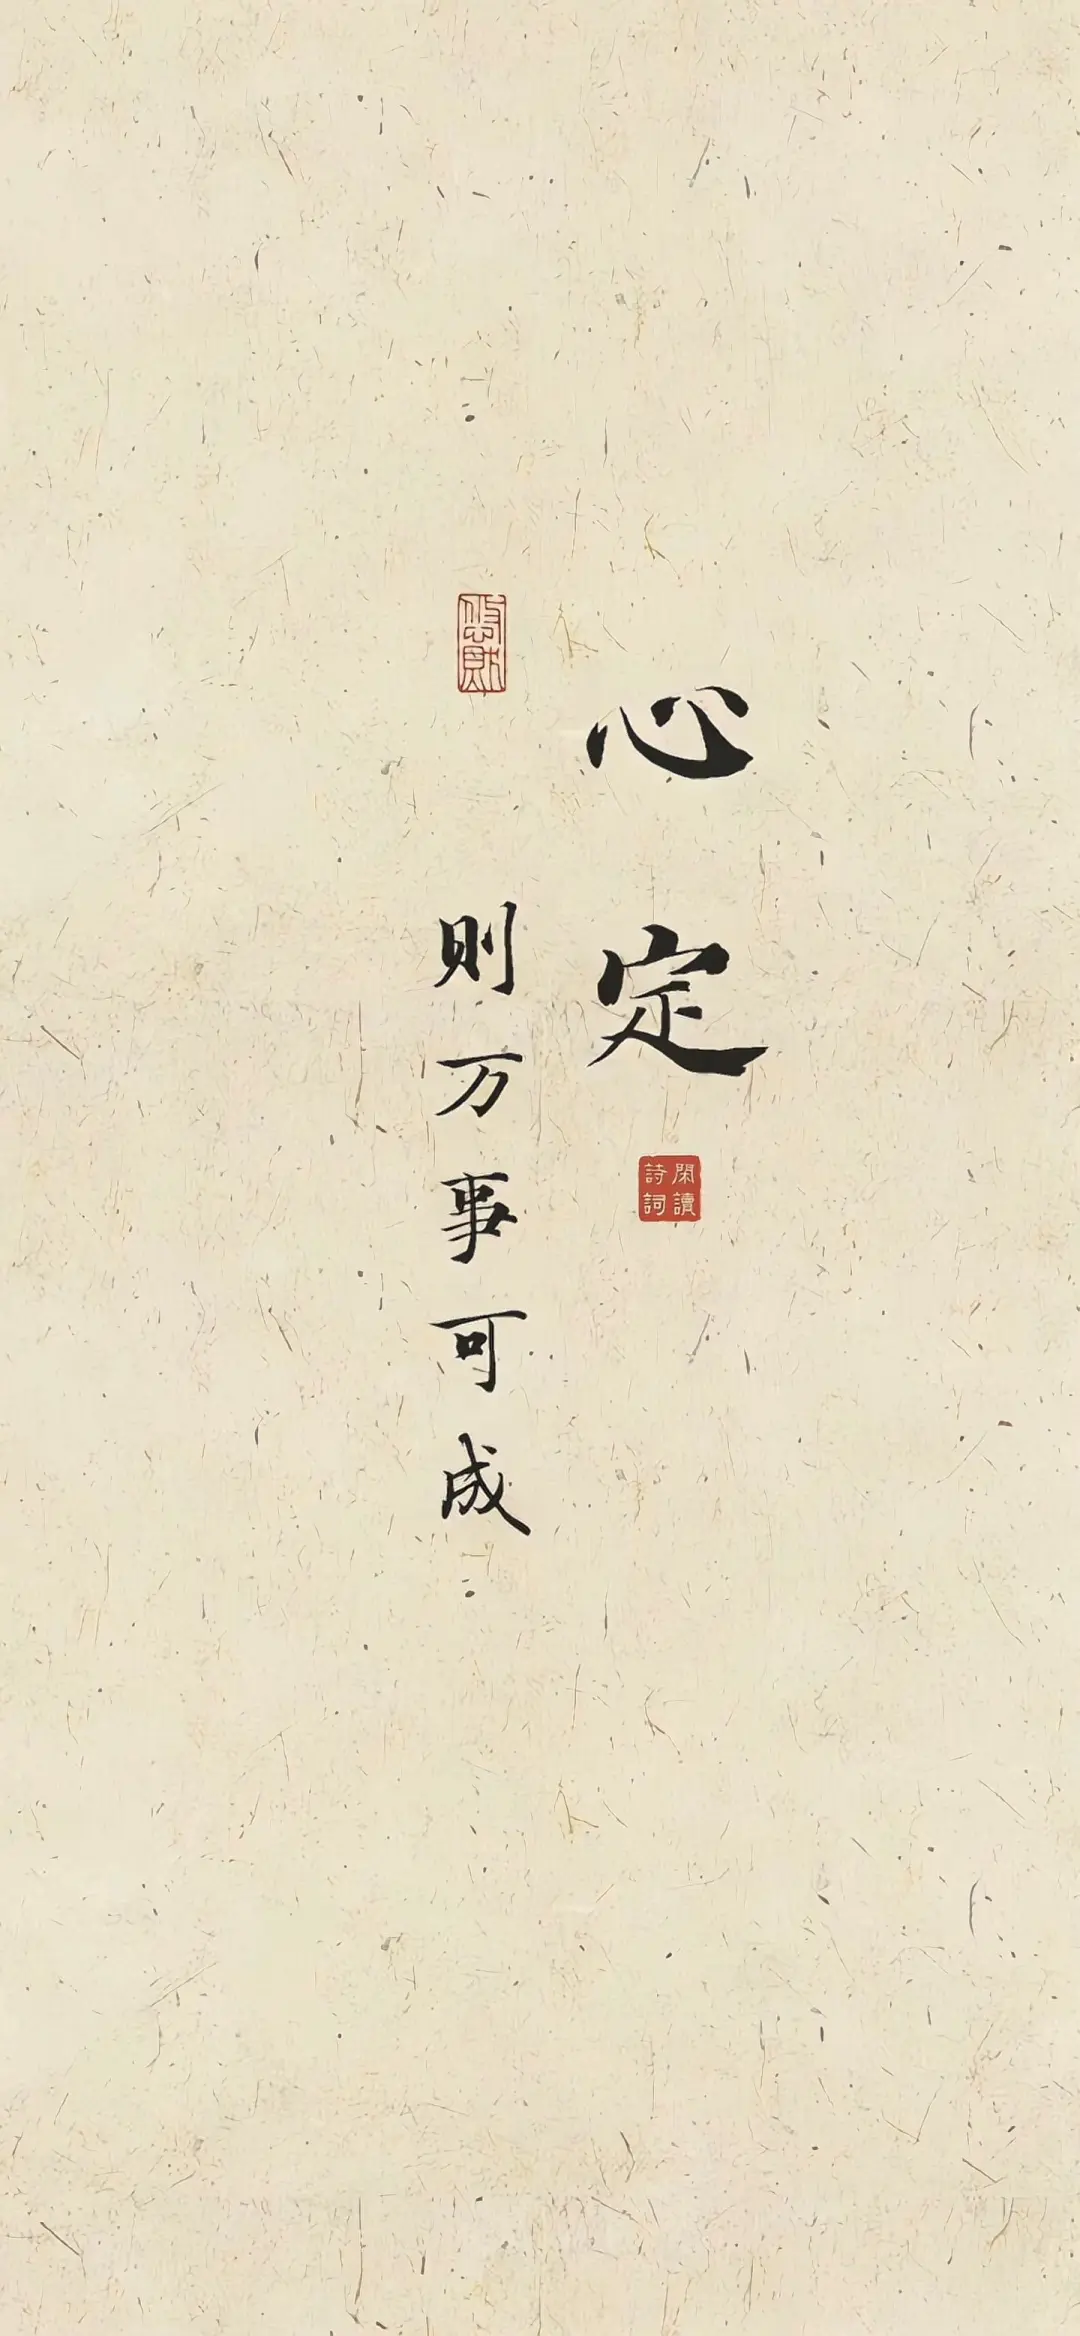 心定
閑讀
詩詞
則万事可成